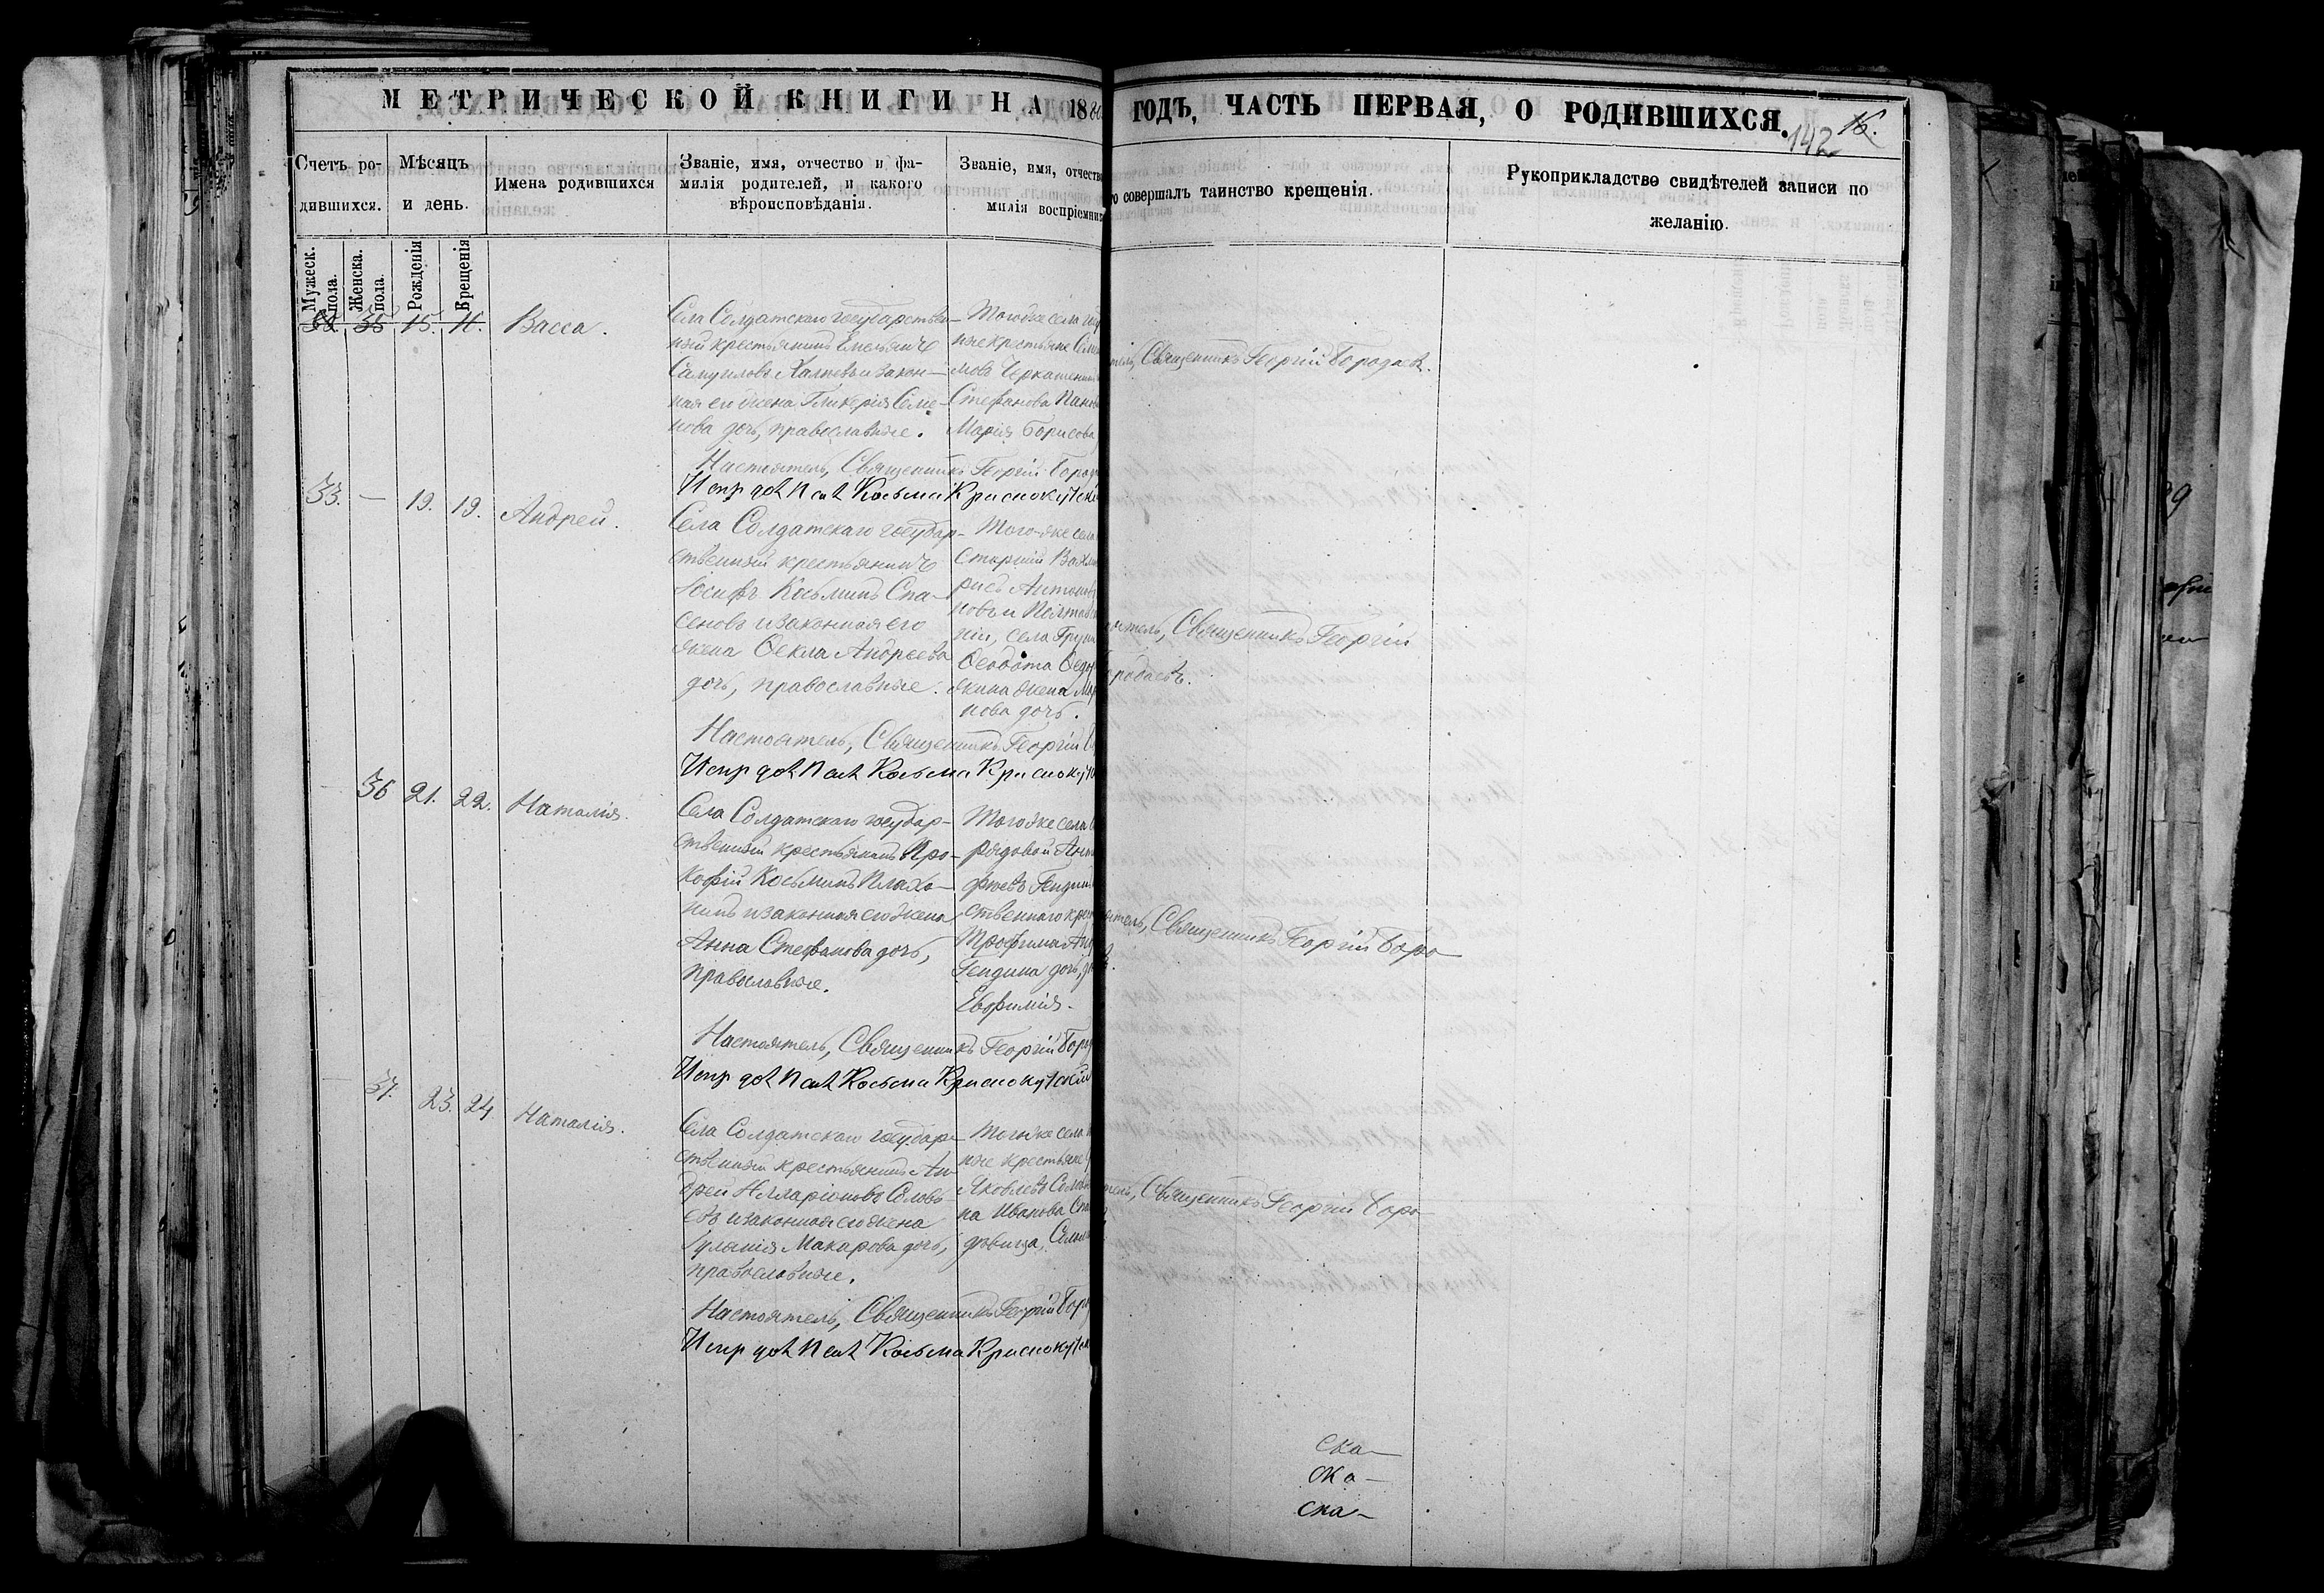 МЕТРИЧЕСКОЙ КНИГИ НА 1880 ГОДЪ, ЧАСТЬ ПЕРВАЯ, О РОДИВШИХСЯ.
142 16.
Счетъ ро-
дившихся.
Мѣсяцъ
и день.
Имена родившихся
Званіе, имя, отчество и фа-
милія родителей, и какого
вѣроисповѣданія.
Званіе, имя, отчество
милія воспріемник
то совершалъ таинство крещенія.
Рукоприкладство свидѣтелей записи по
желанію.
Мужеск. пола.
Женска. пола.
Рожденія
Крещенія
35 15. Васса.
Села Солдатскаго государствен-
ный крестьянинъ Емельянъ
Самуиловъ и закон-
ная его жена Гликерія Семе-
нова дочь, православные.
Того же села
ные крестьяне
Стефанова
Марія Борисова
Священникъ Георгій Бородаев.
Настоятель, Священникъ Георгій Борода
Испр дол Псал Косьма Краснокутскі
33. — 19. 19. Андрей.
Села Солдатскаго государ-
ственный крестьянинъ
Іосифъ Косьминъ Спа-
сеновъ и законная его
жена Ѳекла Андреева
дочь, православные.
Того-же села
Старшій
Антонов
новъ и Полтавс
ніи, села Грун
Ѳеодота Ѳедо
жена
нова дочь.
итель, Священникъ Георгій
ородаевъ.
Настоятель, Священникъ Георгій Б
Испр дол Псал Косьма Краснокут
36 21. 22. Наталія.
Села Солдатскаго государ-
ственный крестьянинъ Про-
кофій Косьминъ Плахо-
нинъ и законная его жена
Анна Стефанова дочь,
православные.
Того же села
рядовой
ственнаго крес
Трофима Анд
дочь,
Евфимія.
ятель, Священникъ Георгій Боро
Настоятель, Священникъ Георгій Бород
Испр дол Псал Косьма Краснокутскій
37. 23. 24. Наталія.
Села Солдатскаго государ-
ственный крестьянинъ Ан-
дрей Илларіоновъ Соловь-
евъ и законная его жена
Іуланія Макарова дочь,
православные.
Того же села
ные крестьяне
Яковлевъ Солов
на Иванова
дѣвица,
тель, Священникъ Георгій Боро-
Настоятель, Священникъ Георгій Бор
Испр дол Псал Косьма Краснокутск
Ска-
Ска-
Ска-